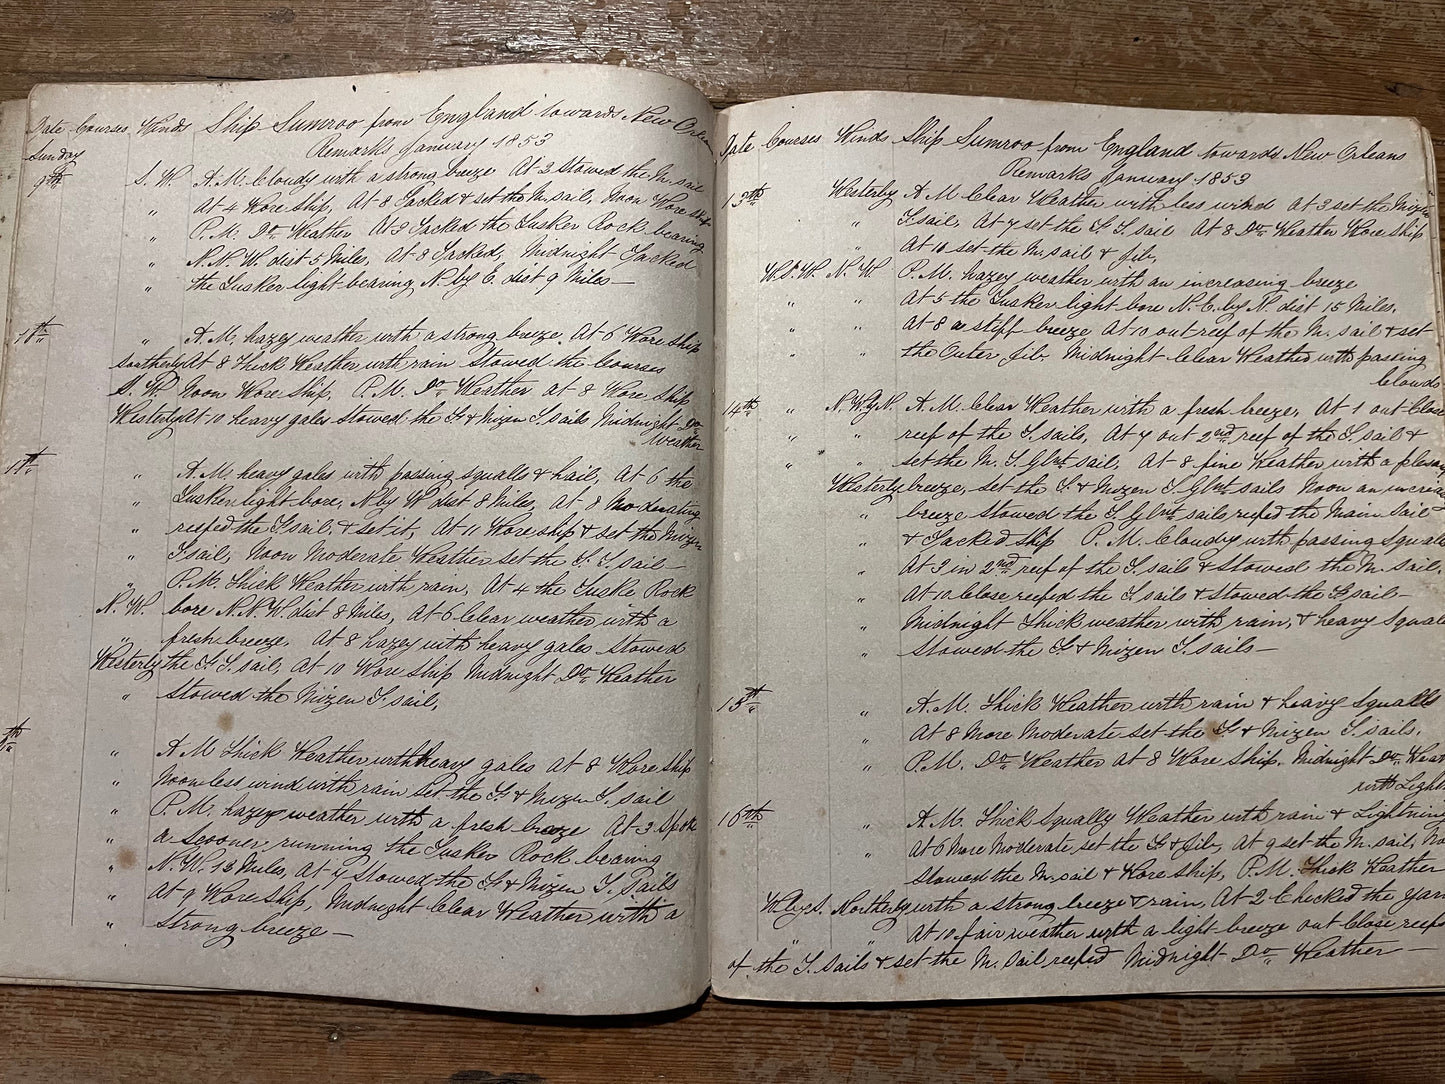 Date Courses Winds Ship Sumroo from England towards New Orleans
Sunday Remarks January 1853
9th S. W. A.M. Cloudy with a strong breeze At 3 Stowed the M. sail
" At 4 Wore Ship, At 8 Tacked & set the M. sail, Noon Wore ship
" P.M. Do Weather At 3 Tacked the Tusker Rock bearing
" N.N.W. dist 5 Miles, At 8 Tacked, Midnight Tacked
" the Tusker light bearing N. by E. dist 9 Miles—
" A.M. hazey weather with a strong breeze. At 6 Wore ship
southerly At 8 Thick Weather with rain Stowed the Courses
S. W. Noon Wore Ship, P.M. Do Weather at 8 Wore Ship
Westerly At 10 heavy gales Stowed the F. & Mizen T. sails Midnight Do
Weather
11th " A.M. heavy gales with passing squalls & hail, At 6 the
" Tusker light bore, N by W dist 8 Miles, at 8 Moderating
" reefed the F sail, & set it, At 11 Wore ship & set the Mizen
" T. sail, Noon Moderate Weather set the F. T. sail—
" P.M. Thick Weather with rain, At 4 the Tuske Rock
N. W. bore N.N.W. dist 8 Miles, At 6 Clear weather with a
" fresh breeze, At 8 hazey with heavy gales Stowed
Westerly the F. T. sail, At 10 Wore Ship Midnight Do Weather
" Stowed the Mizen T. sail,
th " A.M Thick Weather with heavy gales at 8 Wore Ship
" Noon less wind with rain set the F. & Mizen T. sail
" P.M. hazey weather with a fresh breeze At 3 Spok
" a Scooner, running the Tusker Rock bearing
" N.W. 13 Miles, At 7 Stowed the F. & Mizen T. Sails
" At 9 Wore Ship, Midnight Clear Weather with a
" Strong breeze—
Date Courses Winds Ship Sumroo from England towards New Orleans
Remarks January 1853
13th Westerly A.M Clear Weather with less wind At 3 set the Mizen
" T. sail, At 7 set the F. T. sail At 8 Do Weather Wore Ship
" At 10 set the M. sail & Jib,
W.S.W. N. W. P.M. hazey weather with an increasing breeze
" " At 5 the Tusker light bore N.E. by N. dist 15 Miles.
" " At 8 a stiff breeze At 10 out reef of the M. sail & set
" " the Outer Jib Midnight Clear Weather with passing
Clouds
14th " N.W.by N. A.M. Clear Weather with a fresh breeze, At 1 out Close
" " reef of the T. sails, At 7 out 2nd reef of the T. sail &
" " set the M. T. Glnt sail, At 8 fine Weather with a
Westerly breeze, set the F. & Mizen T. Glnt sails Noon an
" breeze Stowed the T Glnt sails, reefed the Main sail
" & Tacked ship P.M. Cloudy with passing Squal
" At 3 in 2nd reef of the T. sails & Stowed the M. sail,
" At 10 Close reefed the T. sails & Stowed the F. sail—
" Midnight Thick weather, with rain, & heavy Squal
" Stowed the F. & Mizen T. sails—
15th " A.M. Thick Weather with rain & heavy Squalls
" At 8 More Moderate set the F. & Mizen T. sails,
" P.M. Do Weather At 8 Wore Ship, Midnight Do Weat
with Light
16th " A.M. Thick Squally Weather with rain & Lightning
" At 6 More Moderate set the F. & Jib, At 9 set the M. sail, No
Stowed the M. sail & Wore Ship, P.M. Thick Weather
W.by S. Northerly with a strong breeze & rain, At 2 Checked the Yar
" " At 10 fair weather with a light breeze out Close reefs
of the T. Sails & set the M. Sail, reefed Midnight Do Weather—